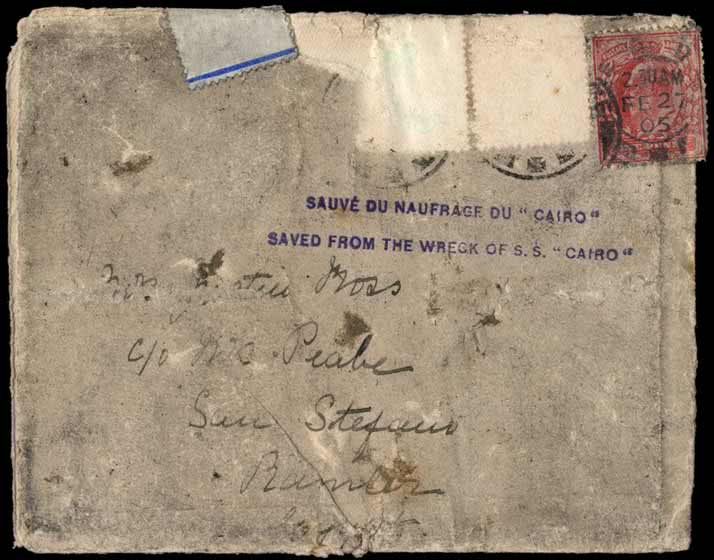 2.30 AM
FE 27
05
SAUVÉ DU NAUFRAGE DU "CAIRO"
SAVED FROM THE WRECK OF S.S. "CAIRO"
Mrs Ross
c/o Mrs Peabe
San Stefano
Ramleh
Egypt